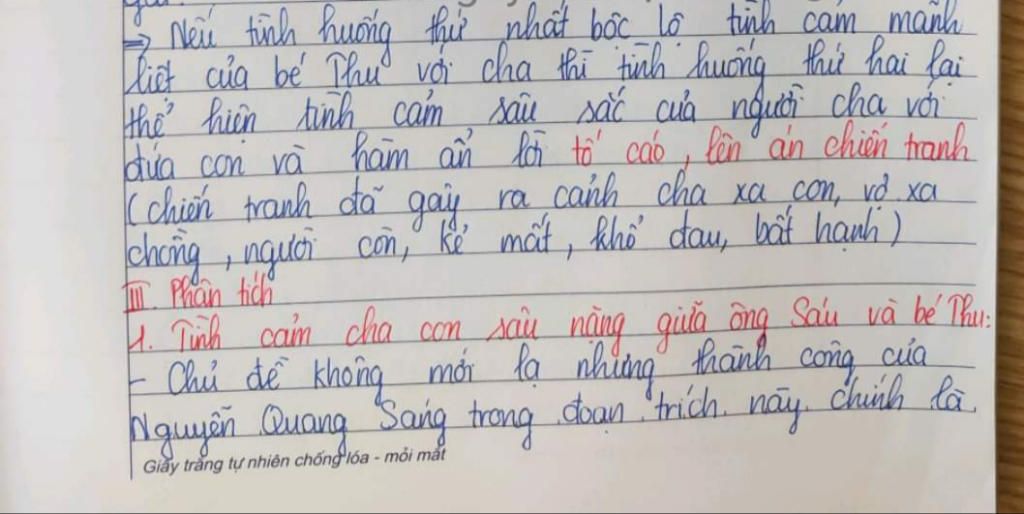 => Nếu tình huống thứ nhất bộc lộ tình cảm mãnh
liệt của bé Thu với cha thì tình huống thứ hai lại
thể hiện tình cảm sâu sắc của người cha với
đứa con và hàm ẩn lời tố cáo, lên án chiến tranh
(chiến tranh đã gây ra cảnh cha xa con, vợ xa
chồng, người còn, kẻ mất, khổ đau, bất hạnh)
III. Phân tích
1. Tình cảm cha con sâu nặng giữa ông Sáu và bé Thu:
- Chủ đề không mới lạ nhưng thành công của
Nguyễn Quang Sáng trong đoạn trích này chính là
Giấy trắng tự nhiên chống lóa - mỏi mắt